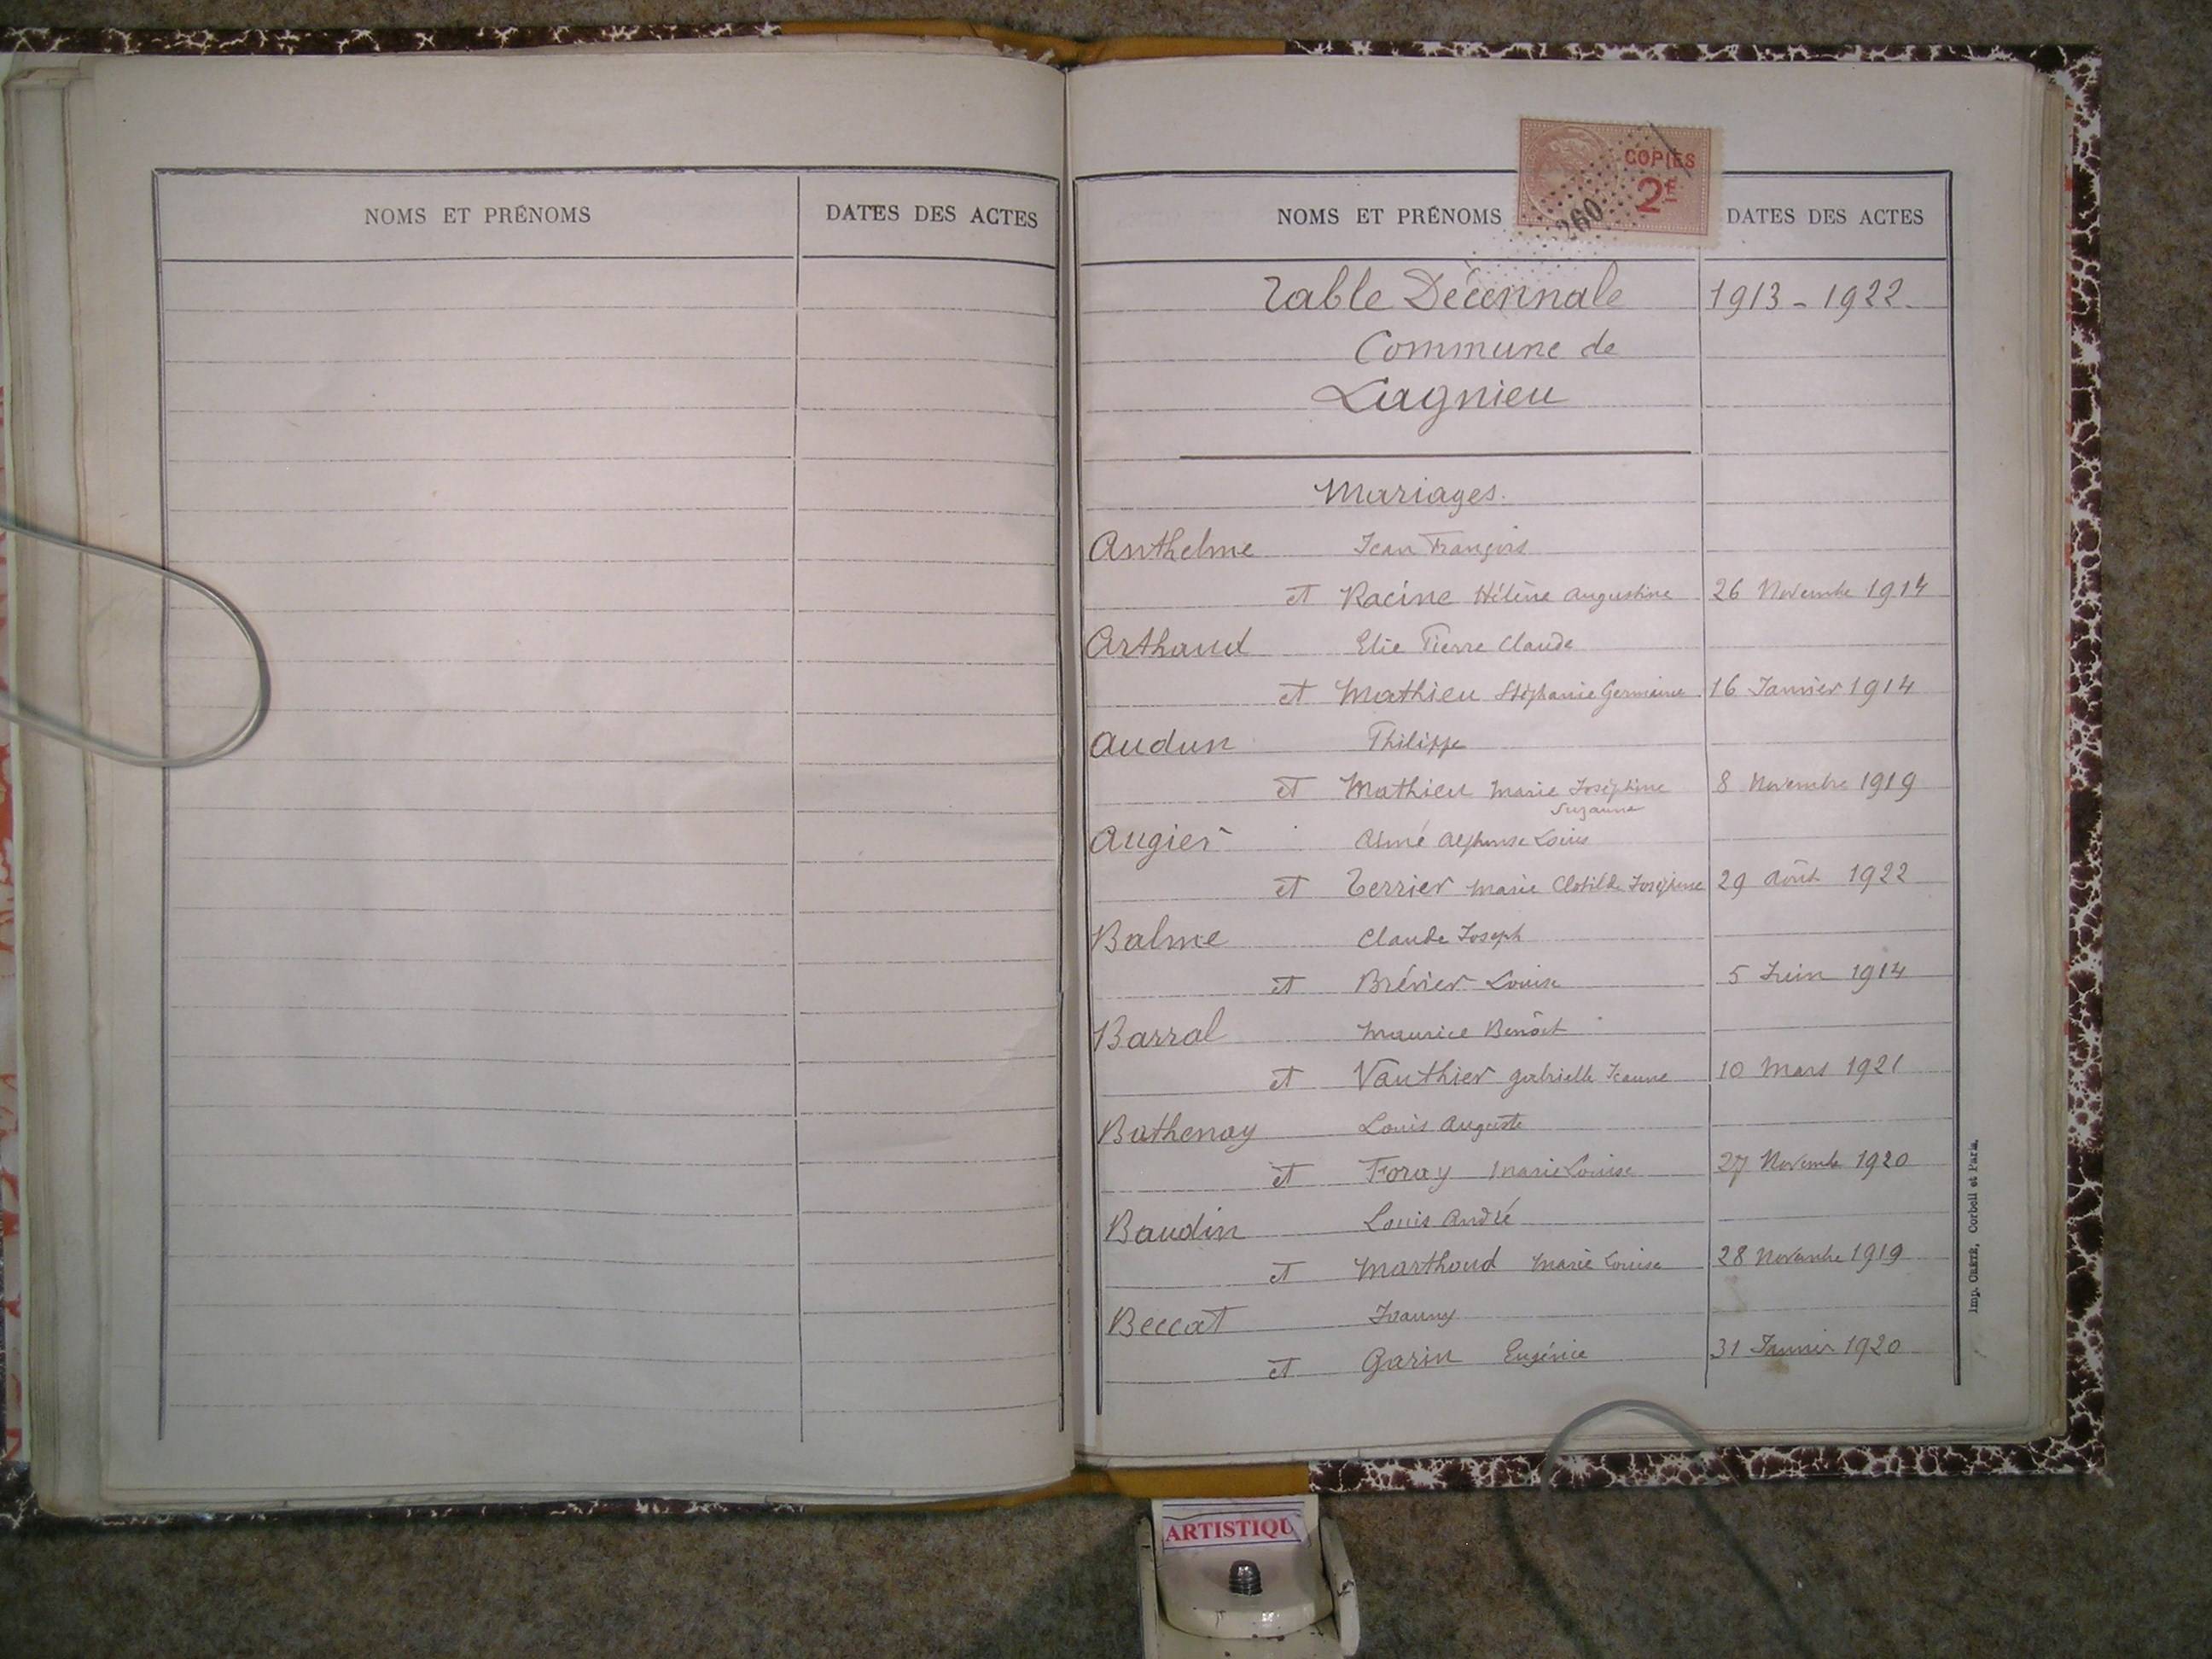 NOMS ET PRÉNOMS
DATES DES ACTES
NOMS ET PRÉNOMS
DATES DES ACTES
COPIES
2F
260
Table Décennale 1913 - 1922.
Commune de
Lagnieu
Mariages.
Anthelme Jean François
et Racine Hélène Augustine 26 Novembre 1914
Arthaud Elie Pierre Claude
et Mathieu Stéphanie Germaine 16 Janvier 1914
Audun Philippe
et Mathieu Marie Joséphine 8 Novembre 1919
Suzanne
Augier Aimé Alphonse Louis
et Terrier Marie Clotilde Joséphine 29 Août 1922
Balme Claude Joseph
et Brévier Louise 5 Juin 1914
Barral Maurice Benoît
et Vauthier Gabrielle Jeanne 10 Mars 1921
Bathenay Louis Auguste
et Foray Marie Louise 27 Novembre 1920
Baudin Louis André
et Marthoud Marie Louise 28 Novembre 1919
Beccat Joanny
et Garin Eugénie 31 Janvier 1920
Imp. CRÉTÉ, Corbeil et Paris.
ARTISTIQU